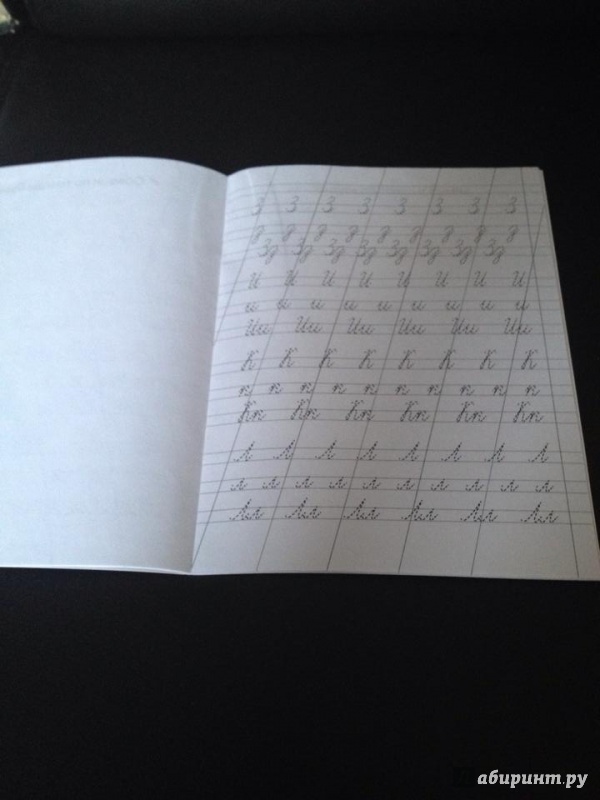 З З З З З З З З
з з з з з з з з з
Зз Зз Зз Зз Зз Зз Зз Зз
И И И И И И И И
и и и и и и и и и
Ии Ии Ии Ии Ии Ии
К К К К К К К К
к к к к к к к к к к
Кк Кк Кк Кк Кк Кк
Л Л Л Л Л Л Л Л
л л л л л л л л л л
Лл Лл Лл Лл Лл Лл
абиринт.ру